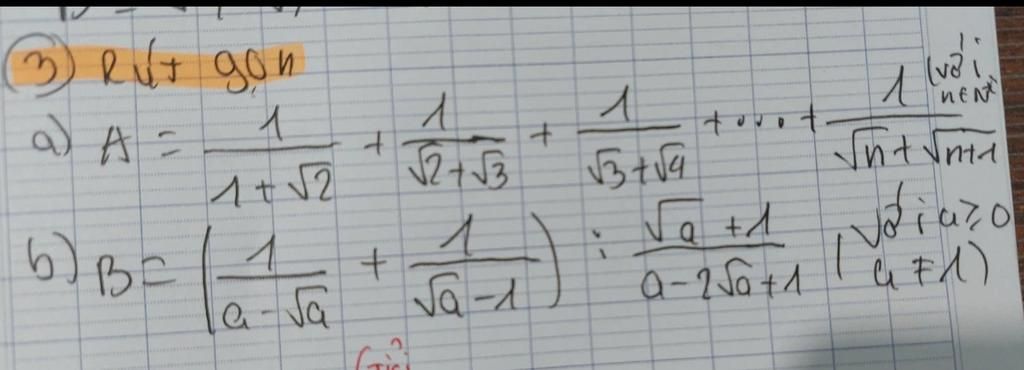 3) Rút gọn
a) A = 1/(1+√2) + 1/(√2+√3) + 1/(√3+√4) + .... + 1/(√n+√n+1) (với n∈N*
b) B = (1/(a-√a) + 1/(√a-1)) : (√a+1)/(a-2√a+1) (với a≥0 a≠1)